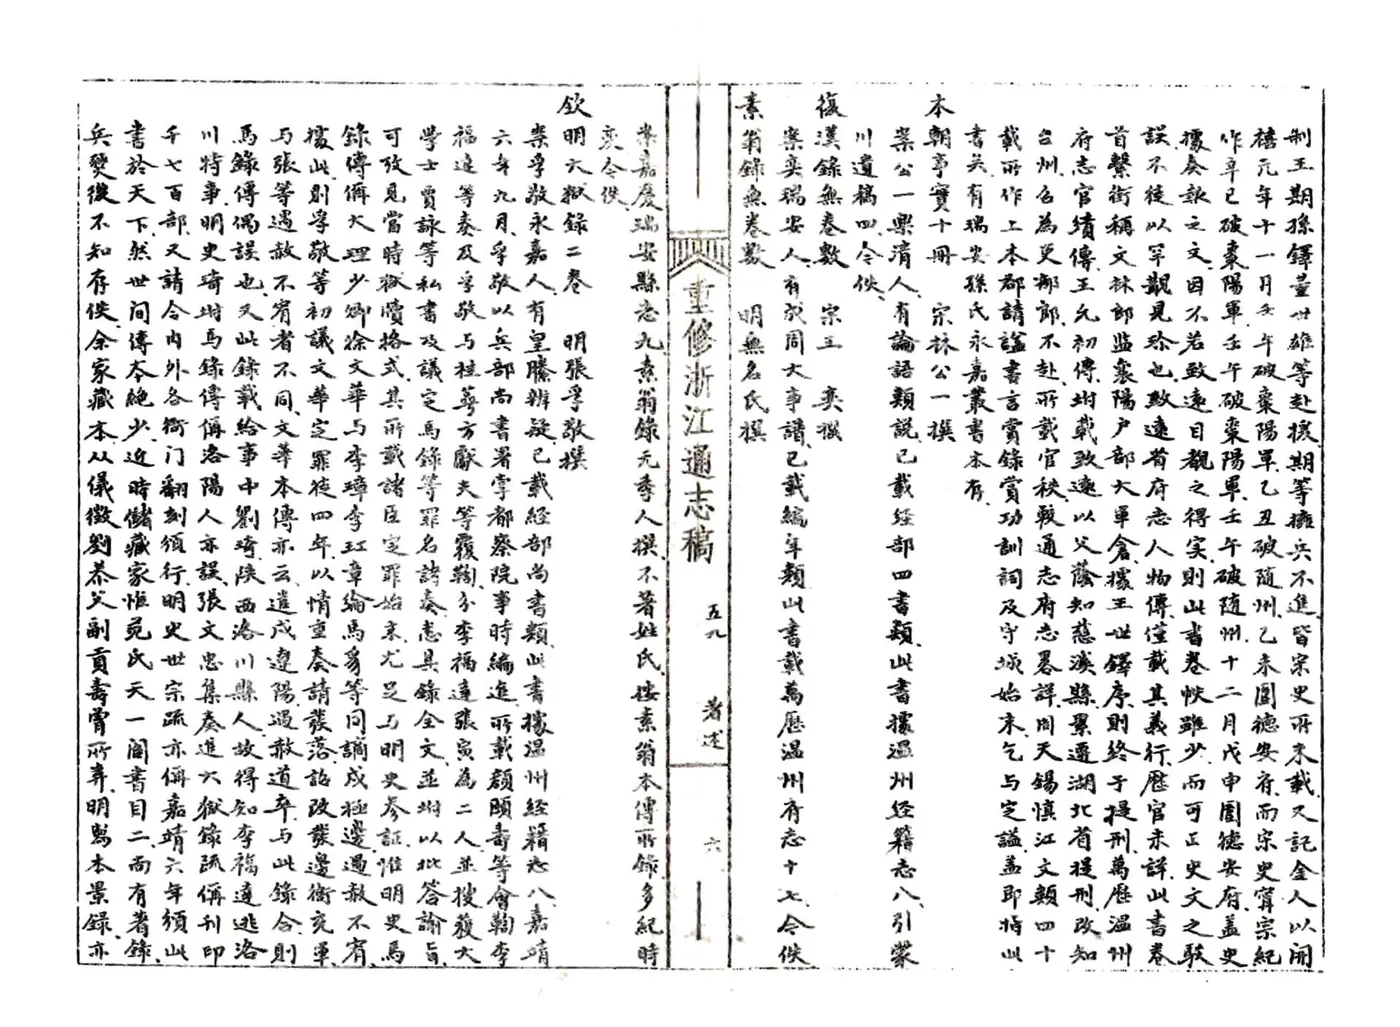 制王期孫鐸董世雄等赴援期等擁兵不進皆宋史所未載又記金人以開
禧元年十一月壬午破棗陽軍乙丑破隨州乙未圍德安府而宋史寧宗紀
作辛巳破棗陽軍壬午破棗陽軍壬午破隨州十二月戊申圍德安府蓋史
據奏報之文因不若致遠目覩之得實則此書卷帙雖少而可正史文之駁
誤不徒以罕覯見珍也致遠省府志人物傳僅載其義行歷官未詳此書卷
首繫銜稱文林郎監襄陽戶部大軍倉據王世鐸序則終于提刑萬歷溫州
府志官績傳王允初傳坿載致遠以父蔭知慈溪縣累遷湖北省提刑改知
台州召為吏部郎不赴所載官秩較通志府志畧詳周天錫慎江文類四十
載所作上本郡請諡書言賞錄賞功訓詞及守城始末乞与定諡盖即指此
書矣有瑞安孫氏永嘉叢書本有
本朝事實十冊 宋林公一撰
案公一樂清人有論語類説已載経部四書類此書據溫州経籍志八引蒙
川遺稿四今佚
復漢錄無卷數 宋王 奕撰
案奕瑞安人有成周大事譜已載編年類此書載萬歷溫州府志十七今佚
素翁錄無卷數 明無名氏撰
重修浙江通志稿 五九 著述 六
案嘉慶瑞安縣志九素翁錄元季人撰不著姓氏按素翁本傳所錄多紀時
変今佚
欽明大獄錄二卷 明張孚敬撰
案孚敬永嘉人有皇牒辨疑已載経部尚書類此書據溫州経籍志八嘉靖
六年九月孚敬以兵部尚書署掌都察院事時編進所載顏頤壽等會鞫李
福達等奏及孚敬与桂萼方獻夫等覆鞫分李福達張寅為二人並搜獲大
學士賈詠等私書及議定馬錄等罪名諸奏悉具錄全文並坿以批答諭旨
可攷見當時獄牘格式其所載諸臣定罪始末尤足与明史參証惟明史馬
錄傳偁大理少卿徐文華与李璋李珏章綸馬豸等同謫戍極邊遇赦不宥
據此則孚敬等初議文華定罪徒四年以情重奏請發落詔改發邊衛充軍
与張等遇赦不宥者不同文華本傳亦云遣戍遼陽遇赦道卒与此錄合則
馬錄傳偶誤也又此錄載給事中劉琦陝西洛川縣人故得知李福達逃洛
川特事明史琦坿馬錄傳偁洛陽人亦誤張文忠集奏進大獄錄疏偁刊印
千七百部又請令内外各衙门翻刻頒行明史世宗疏亦偁嘉靖六年頒此
書於天下然世间傳本絶少近時儲藏家惟范氏天一閣書目二尚有著錄
兵燹後不知存佚余家藏本从儀徵劉恭父副貢壽曾所弆明寫本景錄亦